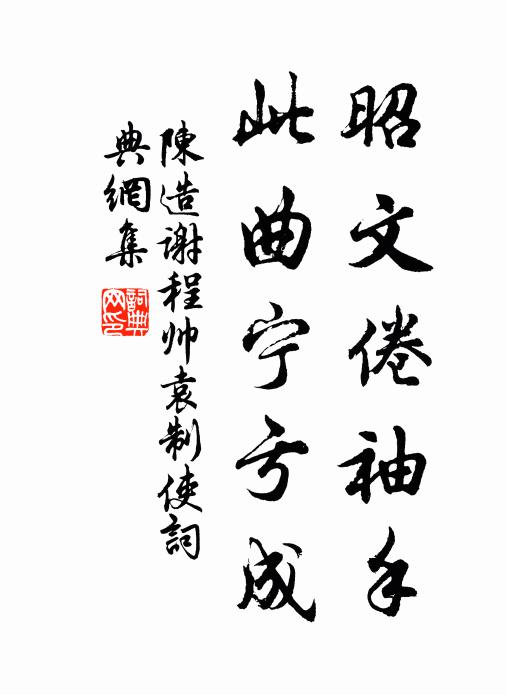 昭文倦袖手
此曲宁亏成
陳造谢程帅袁制使詞
典網集
詞典网印